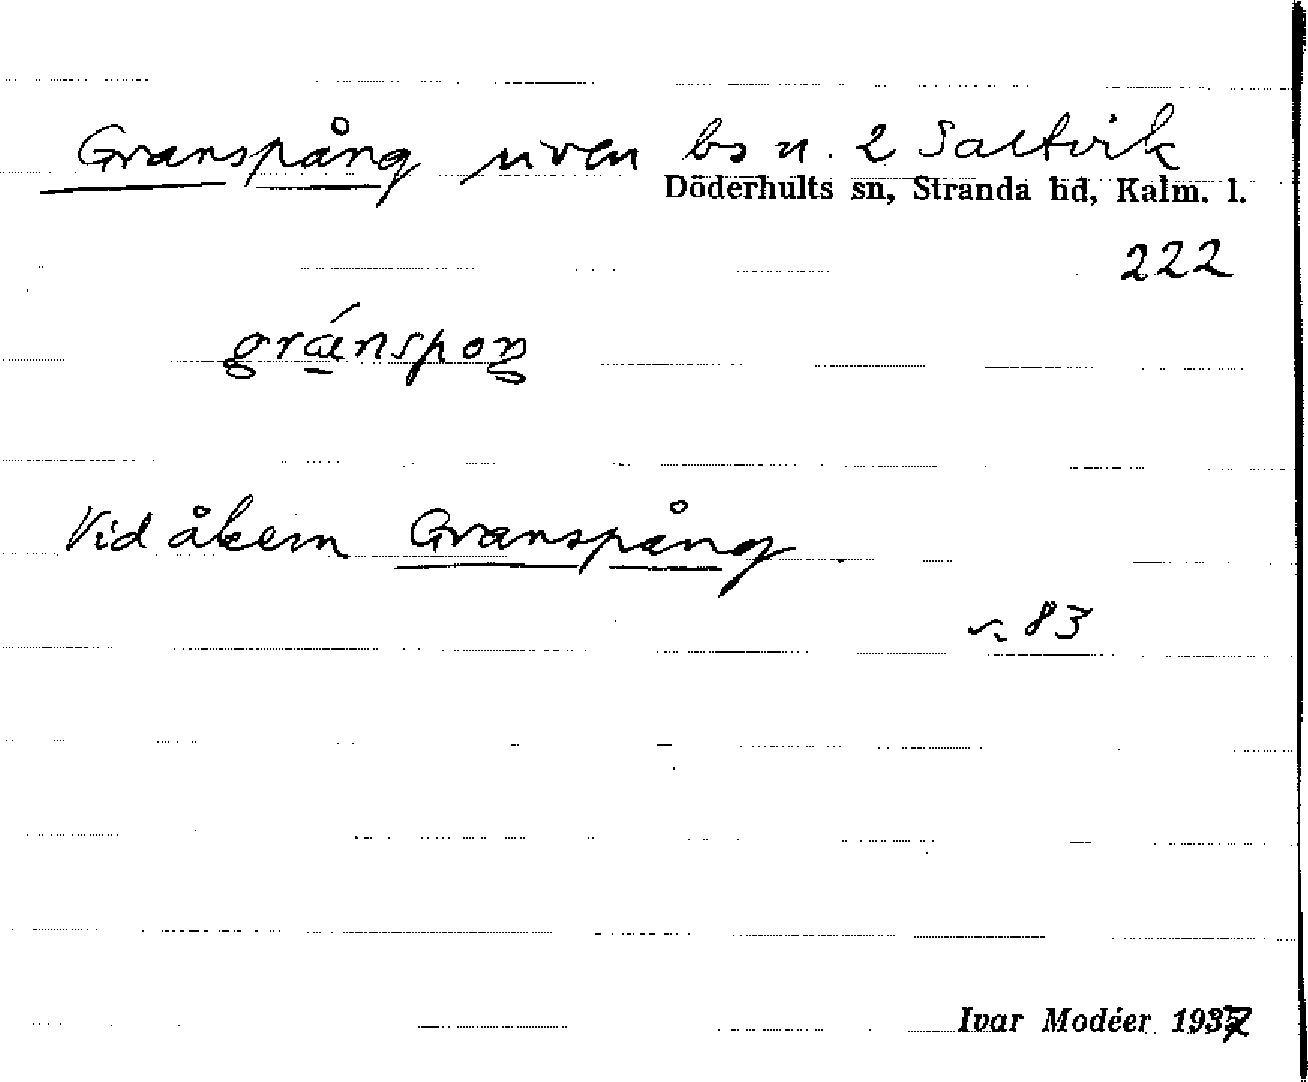 Granspång bs n. 2 Saltvik
Döderhults sn, Stranda hd, Kalm. l.
222
Vid åkern Granspång
s. 83
Ivar Modéer 1937